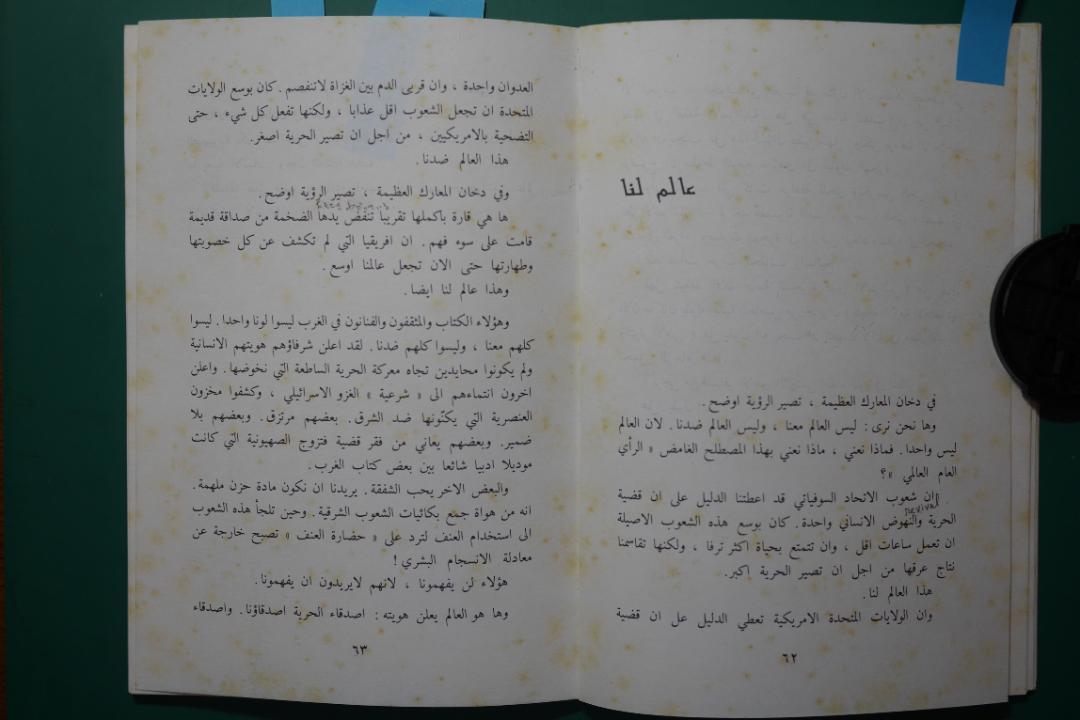 عالم لنا
في دخان المعارك العظيمة ، تصير الرؤية اوضح.
وها نحن نرى: ليس العالم معنا ، وليس العالم ضدنا. لان العالم
ليس واحدا. فماذا نعني ، ماذا نعني بهذا المصطلح الغامض « الرأي
العام العالمي »؟
ان شعوب الاتحاد السوفياتي قد اعطتنا الدليل على ان قضية
revival
الحرية والنهوض الانساني واحدة. كان بوسع هذه الشعوب الاصيلة
ان تعمل ساعات اقل ، وان تتمتع بحياة اكثر ترفا ، ولكنها تقاسمنا
نتاج عرقها من اجل ان تصير الحرية اكبر.
هذا العالم لنا.
وان الولايات المتحدة الامريكية تعطي الدليل عل ان قضية
٦٢
العدوان واحدة ، وان قربى الدم بين الغزاة لاتنفصم. كان بوسع الولايات
المتحدة ان تجعل الشعوب اقل عذابا ، ولكنها تفعل كل شيء ، حتى
التضحية بالامريكيين ، من اجل ان تصير الحرية اصغر.
هذا العالم ضدنا.
وفي دخان المعارك العظيمة ، تصير الرؤية اوضح.
ها هي قارة بأكملها تقريبا تنفض يدها الضخمة من صداقة قديمة
قامت على سوء فهم. ان افريقيا التي لم تكشف عن كل خصوبتها
وطهارتها حتى الان تجعل عالمنا اوسع.
وهذا عالم لنا ايضا.
وهؤلاء الكتاب والمثقفون والفنانون في الغرب ليسوا لونا واحدا. ليسوا
كلهم معنا ، وليسوا كلهم ضدنا. لقد اعلن شرفاؤهم هويتهم الانسانية
ولم يكونوا محايدين تجاه معركة الحرية الساطعة التي نخوضها. واعلن
اخرون انتماءهم الى « شرعية » الغزو الاسرائيلي ، وكشفوا مخزون
العنصرية التي يكنّونها ضد الشرق. بعضهم مرتزق. وبعضهم بلا
ضمير. وبعضهم يعاني من فقر قضية فتزوج الصهيونية التي كانت
موديلا ادبيا شائعا بين بعض كتاب الغرب.
والبعض الاخر يحب الشفقة. يريدنا ان نكون مادة حزن ملهمة.
انه من هواة جمع بكائيات الشعوب الشرقية. وحين تلجأ هذه الشعوب
الى استخدام العنف لترد على « حضارة العنف » تصبح خارجة عن
معادلة الانسجام البشري!
هؤلاء لن يفهمونا ، لانهم لايريدون ان يفهمونا.
وها هو العالم يعلن هويته: اصدقاء الحرية اصدقاؤنا. واصدقاء
٦٣